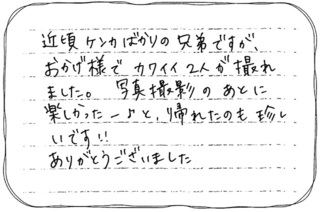 近頃ケンカばかりの兄弟ですが、
おかげ様でカワイイ2人が撮れ
ました。 写真撮影のあとに
楽しかったー♪と、帰れたのも珍し
いです!!
ありがとうございました